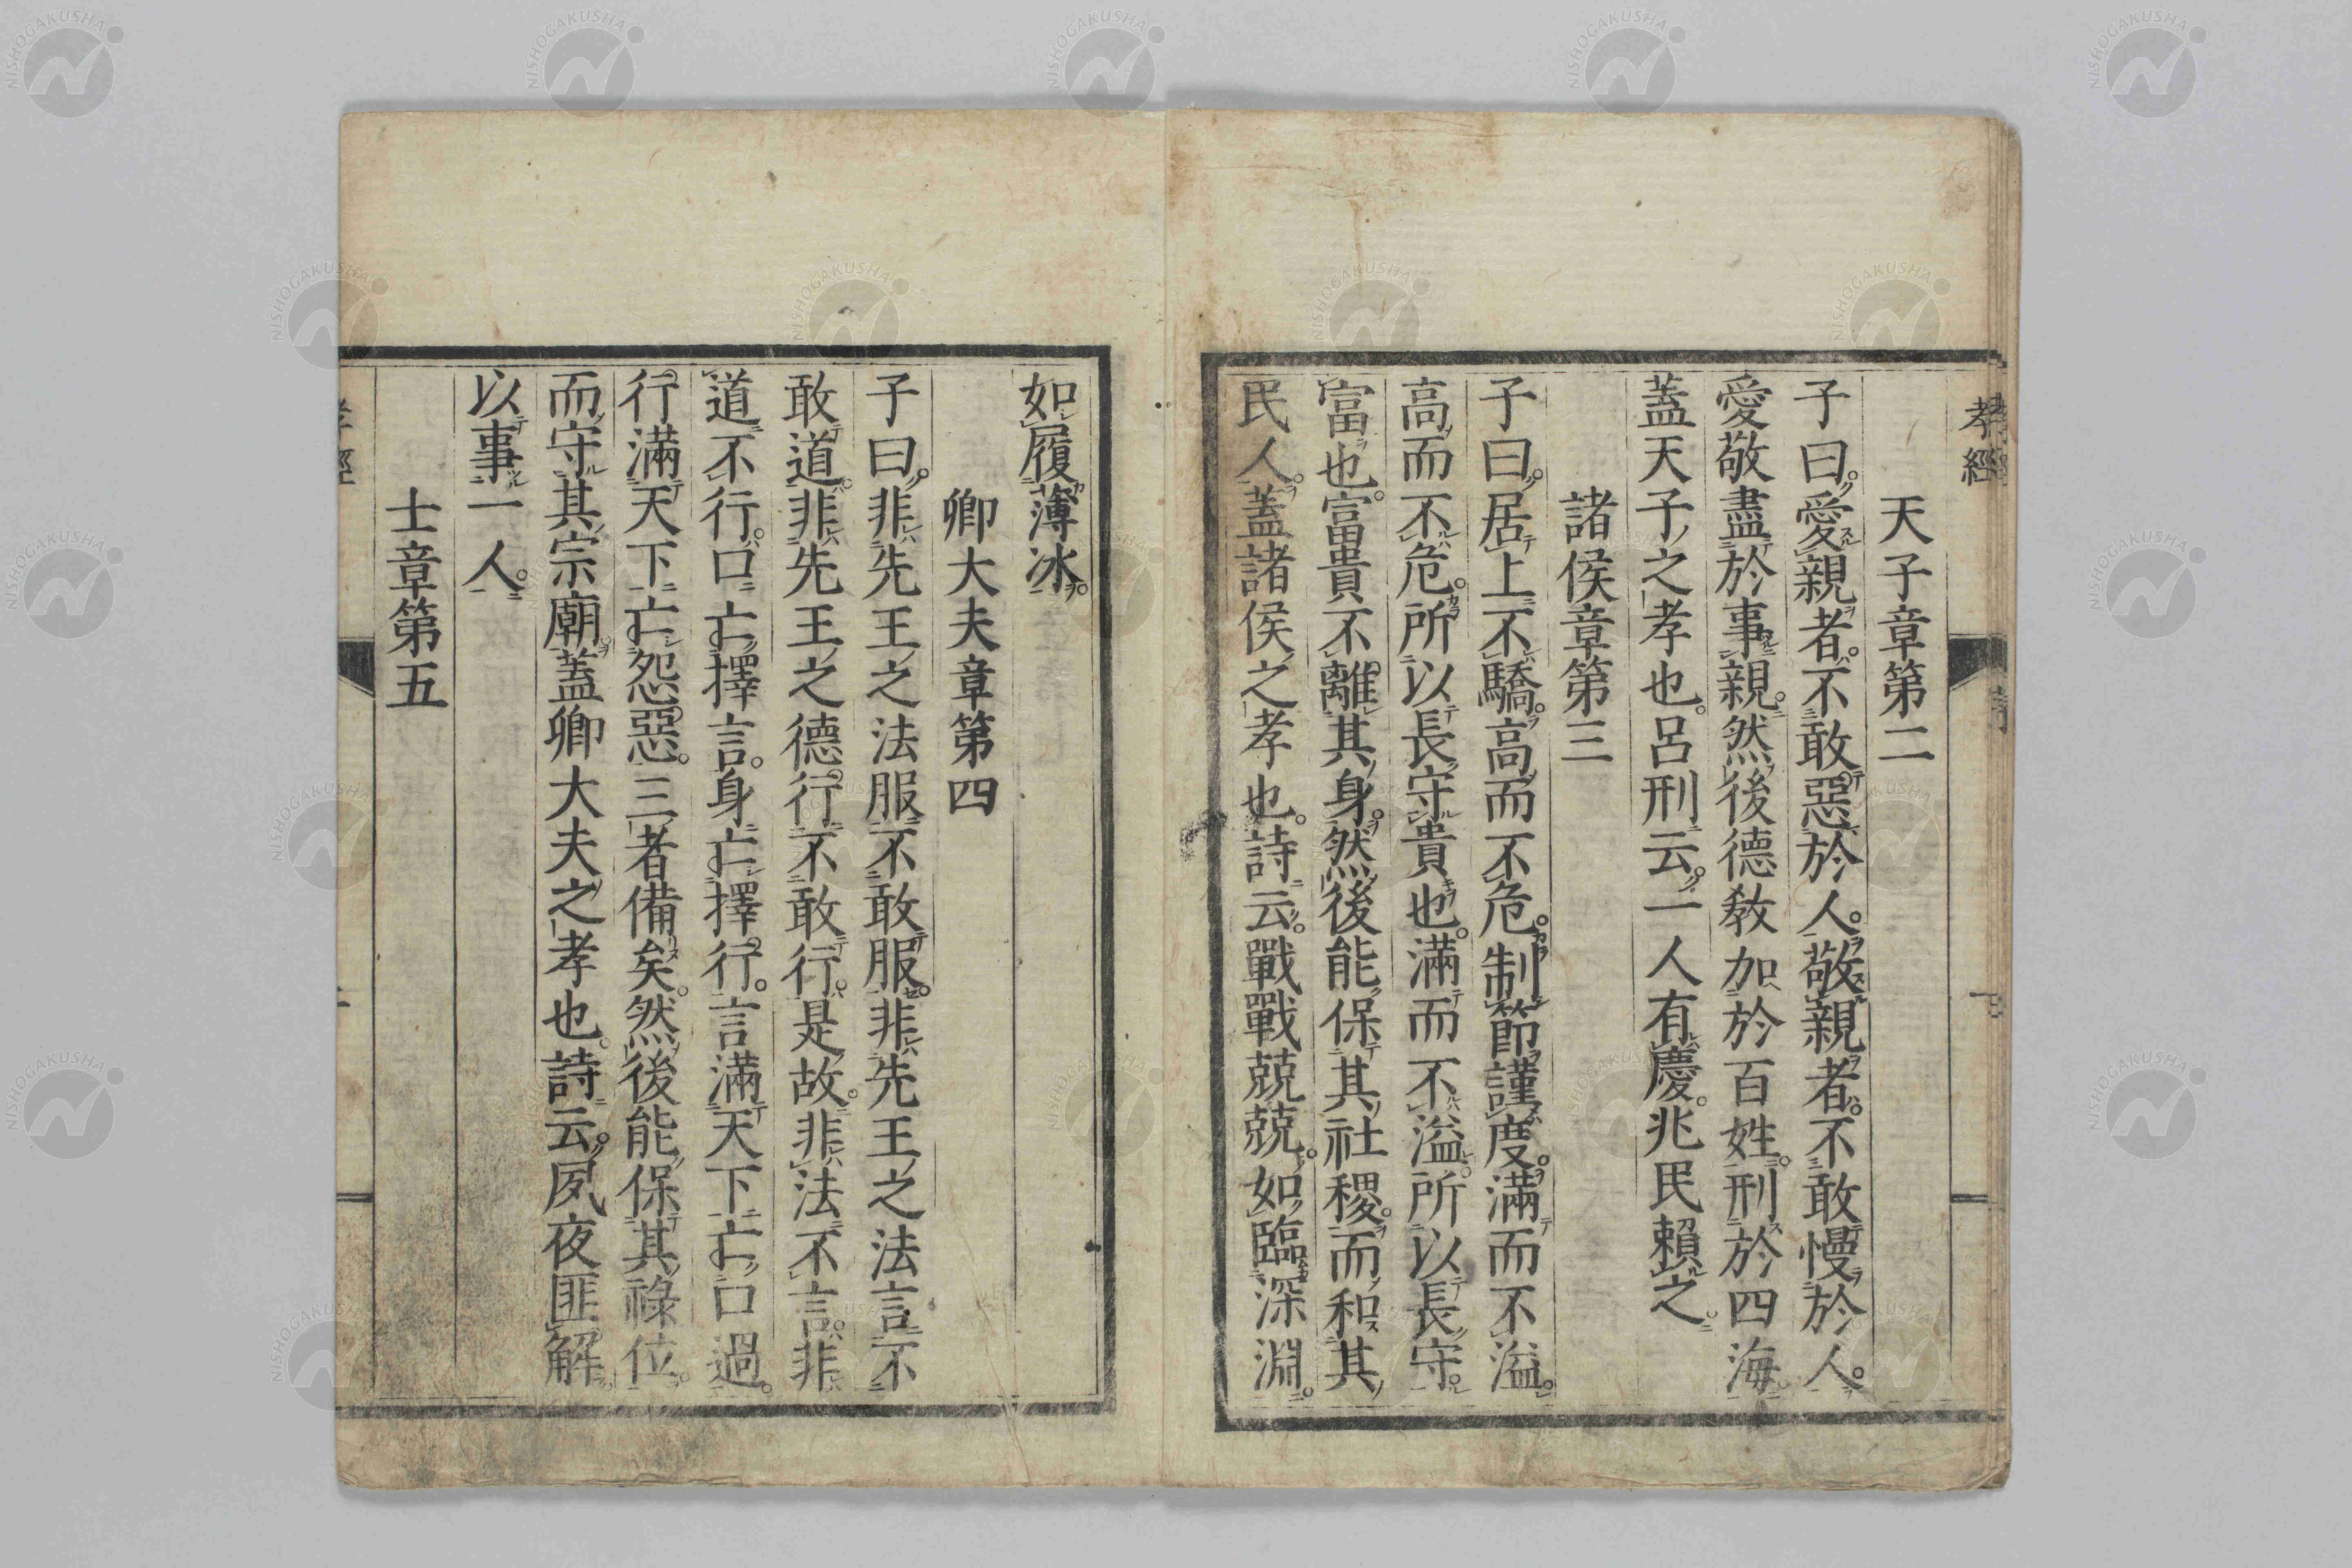 孝經
天子章第二
子曰。愛親者。不敢惡於人。敬親者。不敢慢於人。
愛敬盡於事親。然後德敎加於百姓。刑於四海。
蓋天子之孝也。呂刑云。一人有慶。兆民賴之。
諸侯章第三
子曰。居上不驕。高而不危。制節謹度。滿而不溢。
高而不危。所以長守貴也。滿而不溢。所以長守
富也。富貴不離其身。然後能保其社稷。而和其
民人。蓋諸侯之孝也。詩云。戰戰兢兢。如臨深淵。
如履薄冰。
卿大夫章第四
子曰。非先王之法服不敢服。非先王之法言不
敢道。非先王之德行不敢行。是故。非法不言。非
道不行。口亡擇言。身亡擇行。言滿天下亡口過。
行滿天下亡怨惡。三者備矣。然後能保其祿位。
而守其宗廟。蓋卿大夫之孝也。詩云。夙夜匪解。
以事一人。
士章第五
孝經
NISHOGAKUSHA